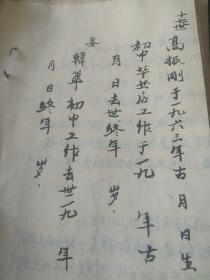 十世 高振刚 于一九六三年古 月 日生
初中毕业 工作于一九 年古
月 日去世 终年 岁.
妻
韩苹 初中 工作 去世一九 年
月 日 终年 岁.